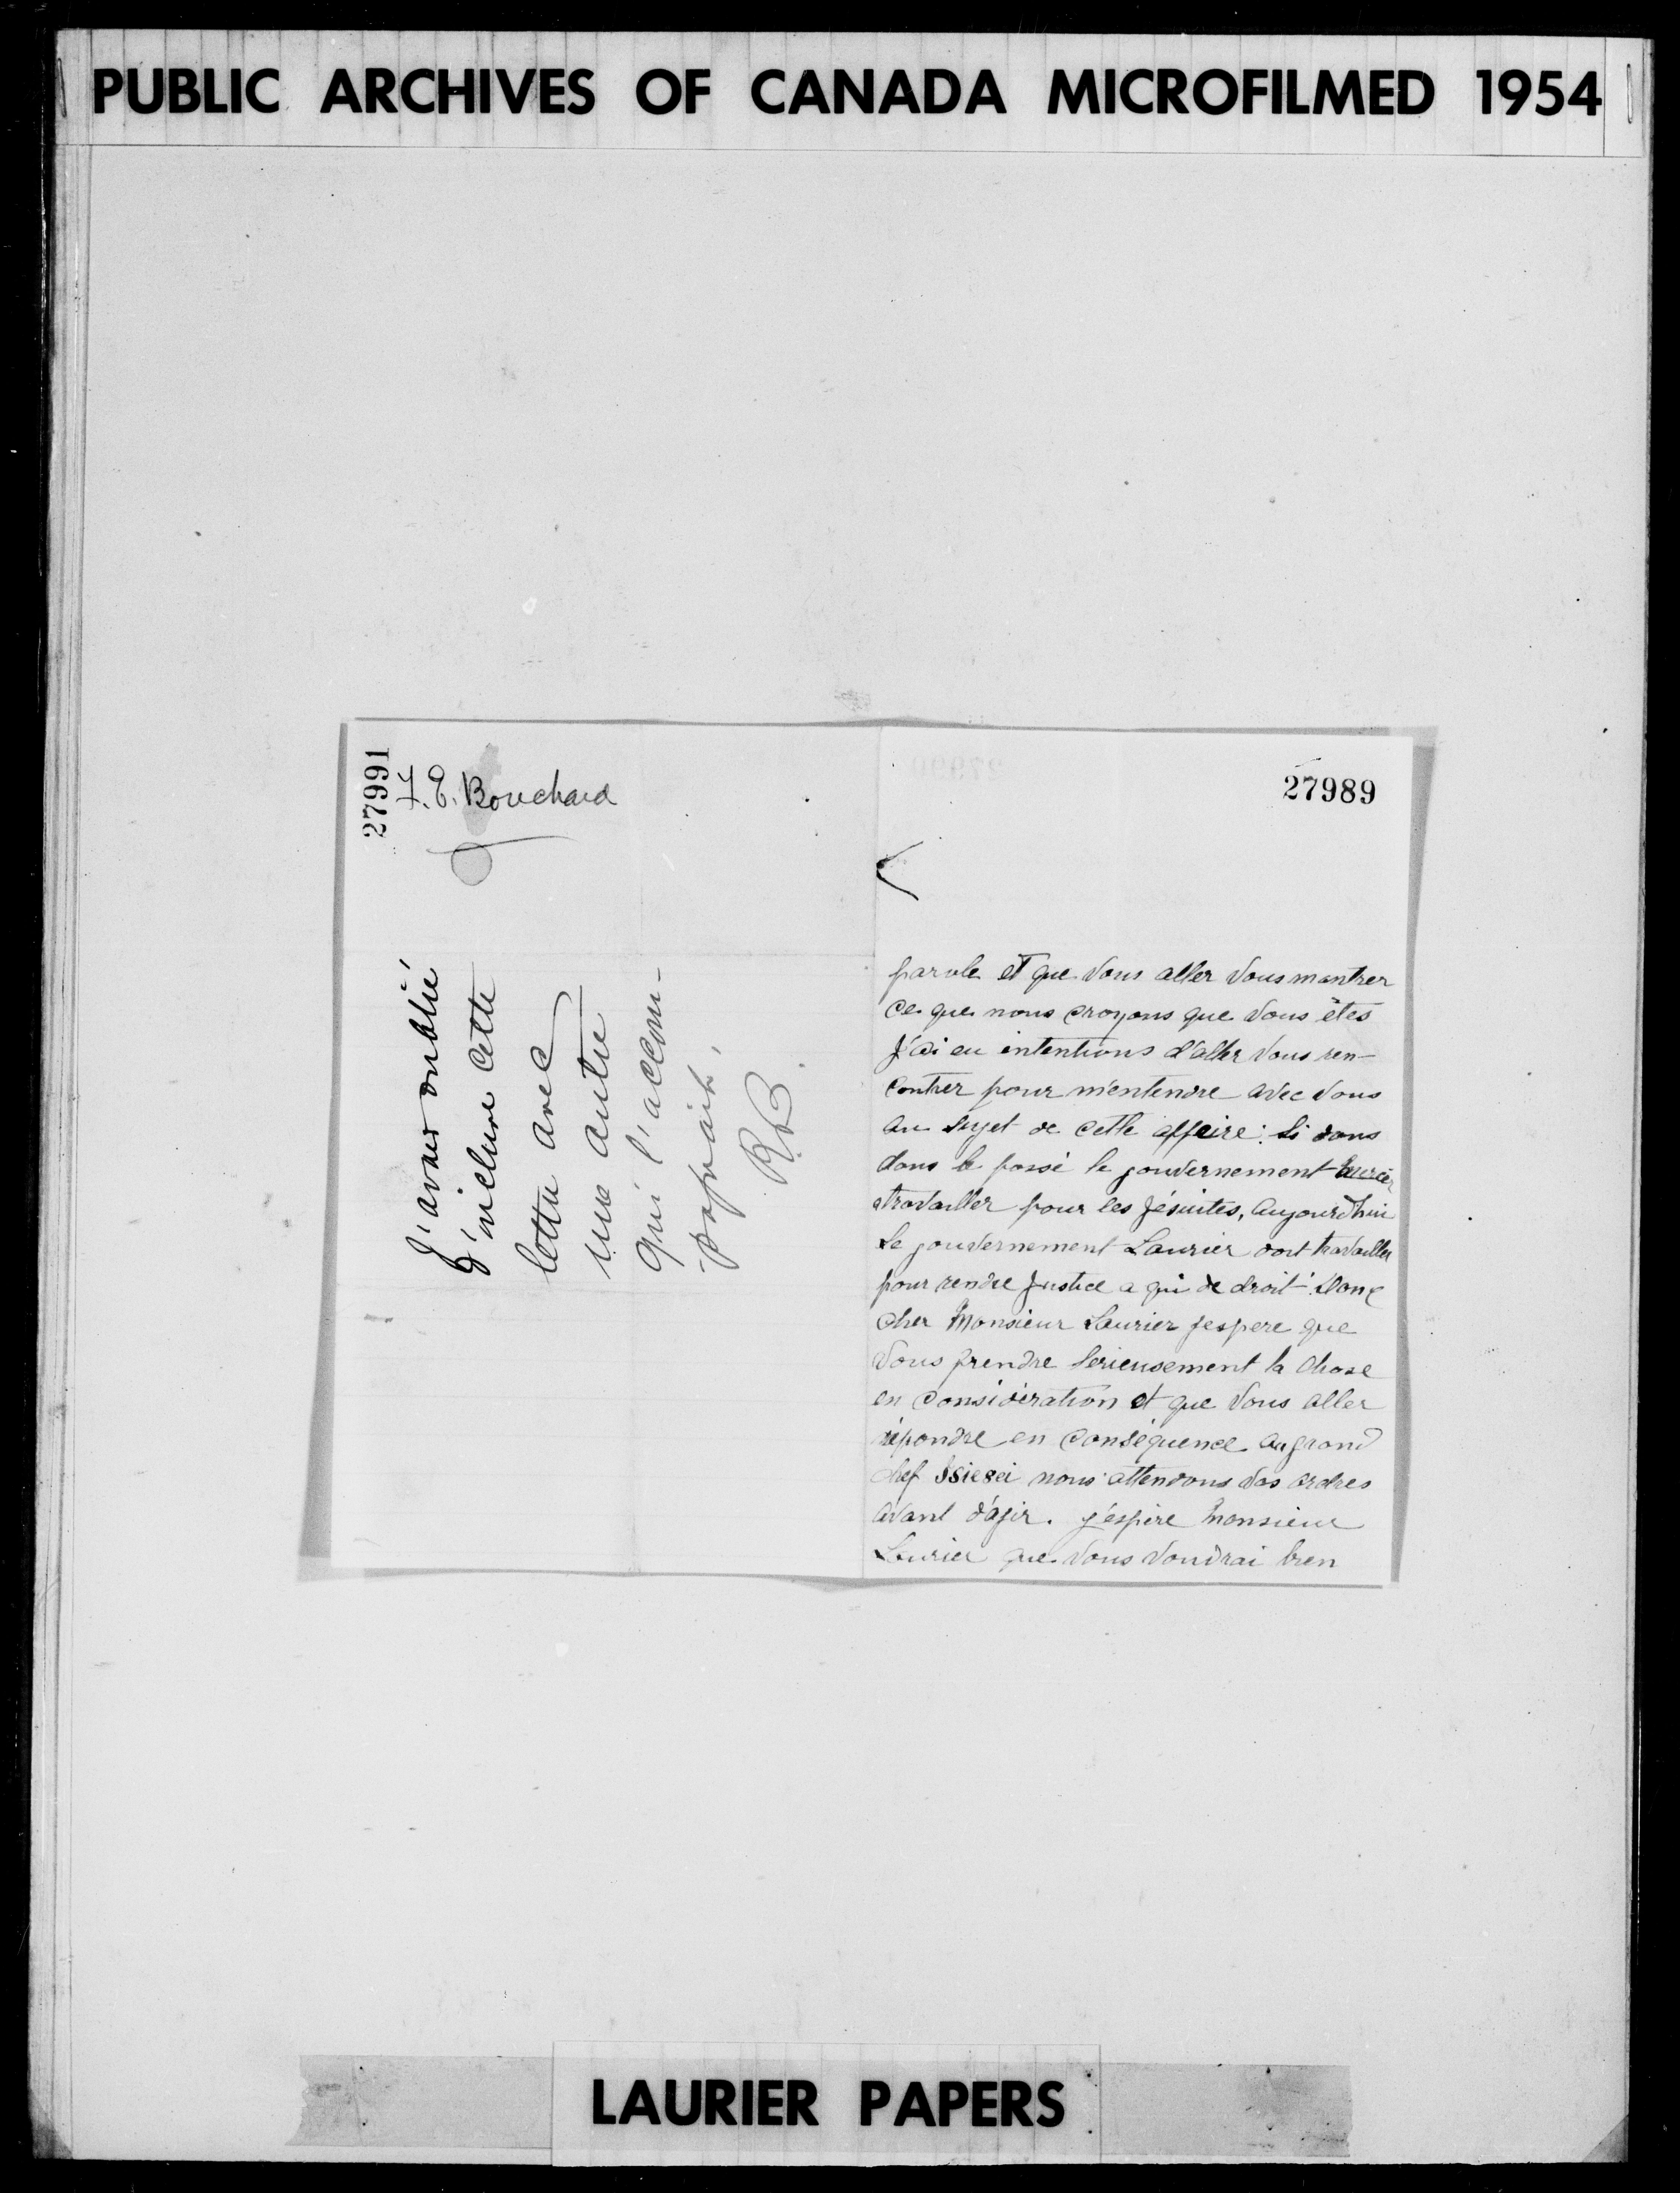 PUBLIC ARCHIVES OF CANADA MICROFILMED 1954
27991
F. E. Bouchard
J'avais oublié
d'inclure cette
lettre avec
une autre
qui l'accom-
-pagnait.
RB.
27989
parole et que vous aller vous montrer
ce que nous croyons que vous êtes
J'ai eu intentions d'aller vous ren-
contrer pour m'entendre avec vous
au sujet de cette affeire. Si dans
dans le passé le gouvernement Mercier
a travailler pour les Jésuites, aujourdhui
le gouvernement Laurier doit travailler
pour rendre justice a qui de droit. Donc
cher Monsieur Laurier jespere que
vous prendre serieusement la chose
en considération et que vous aller
répondre en conséquence au grand
chef nous attendons vos ordres
avant d'agir. j'espère Monsieur
Laurier que vous voudrai bien
LAURIER PAPERS